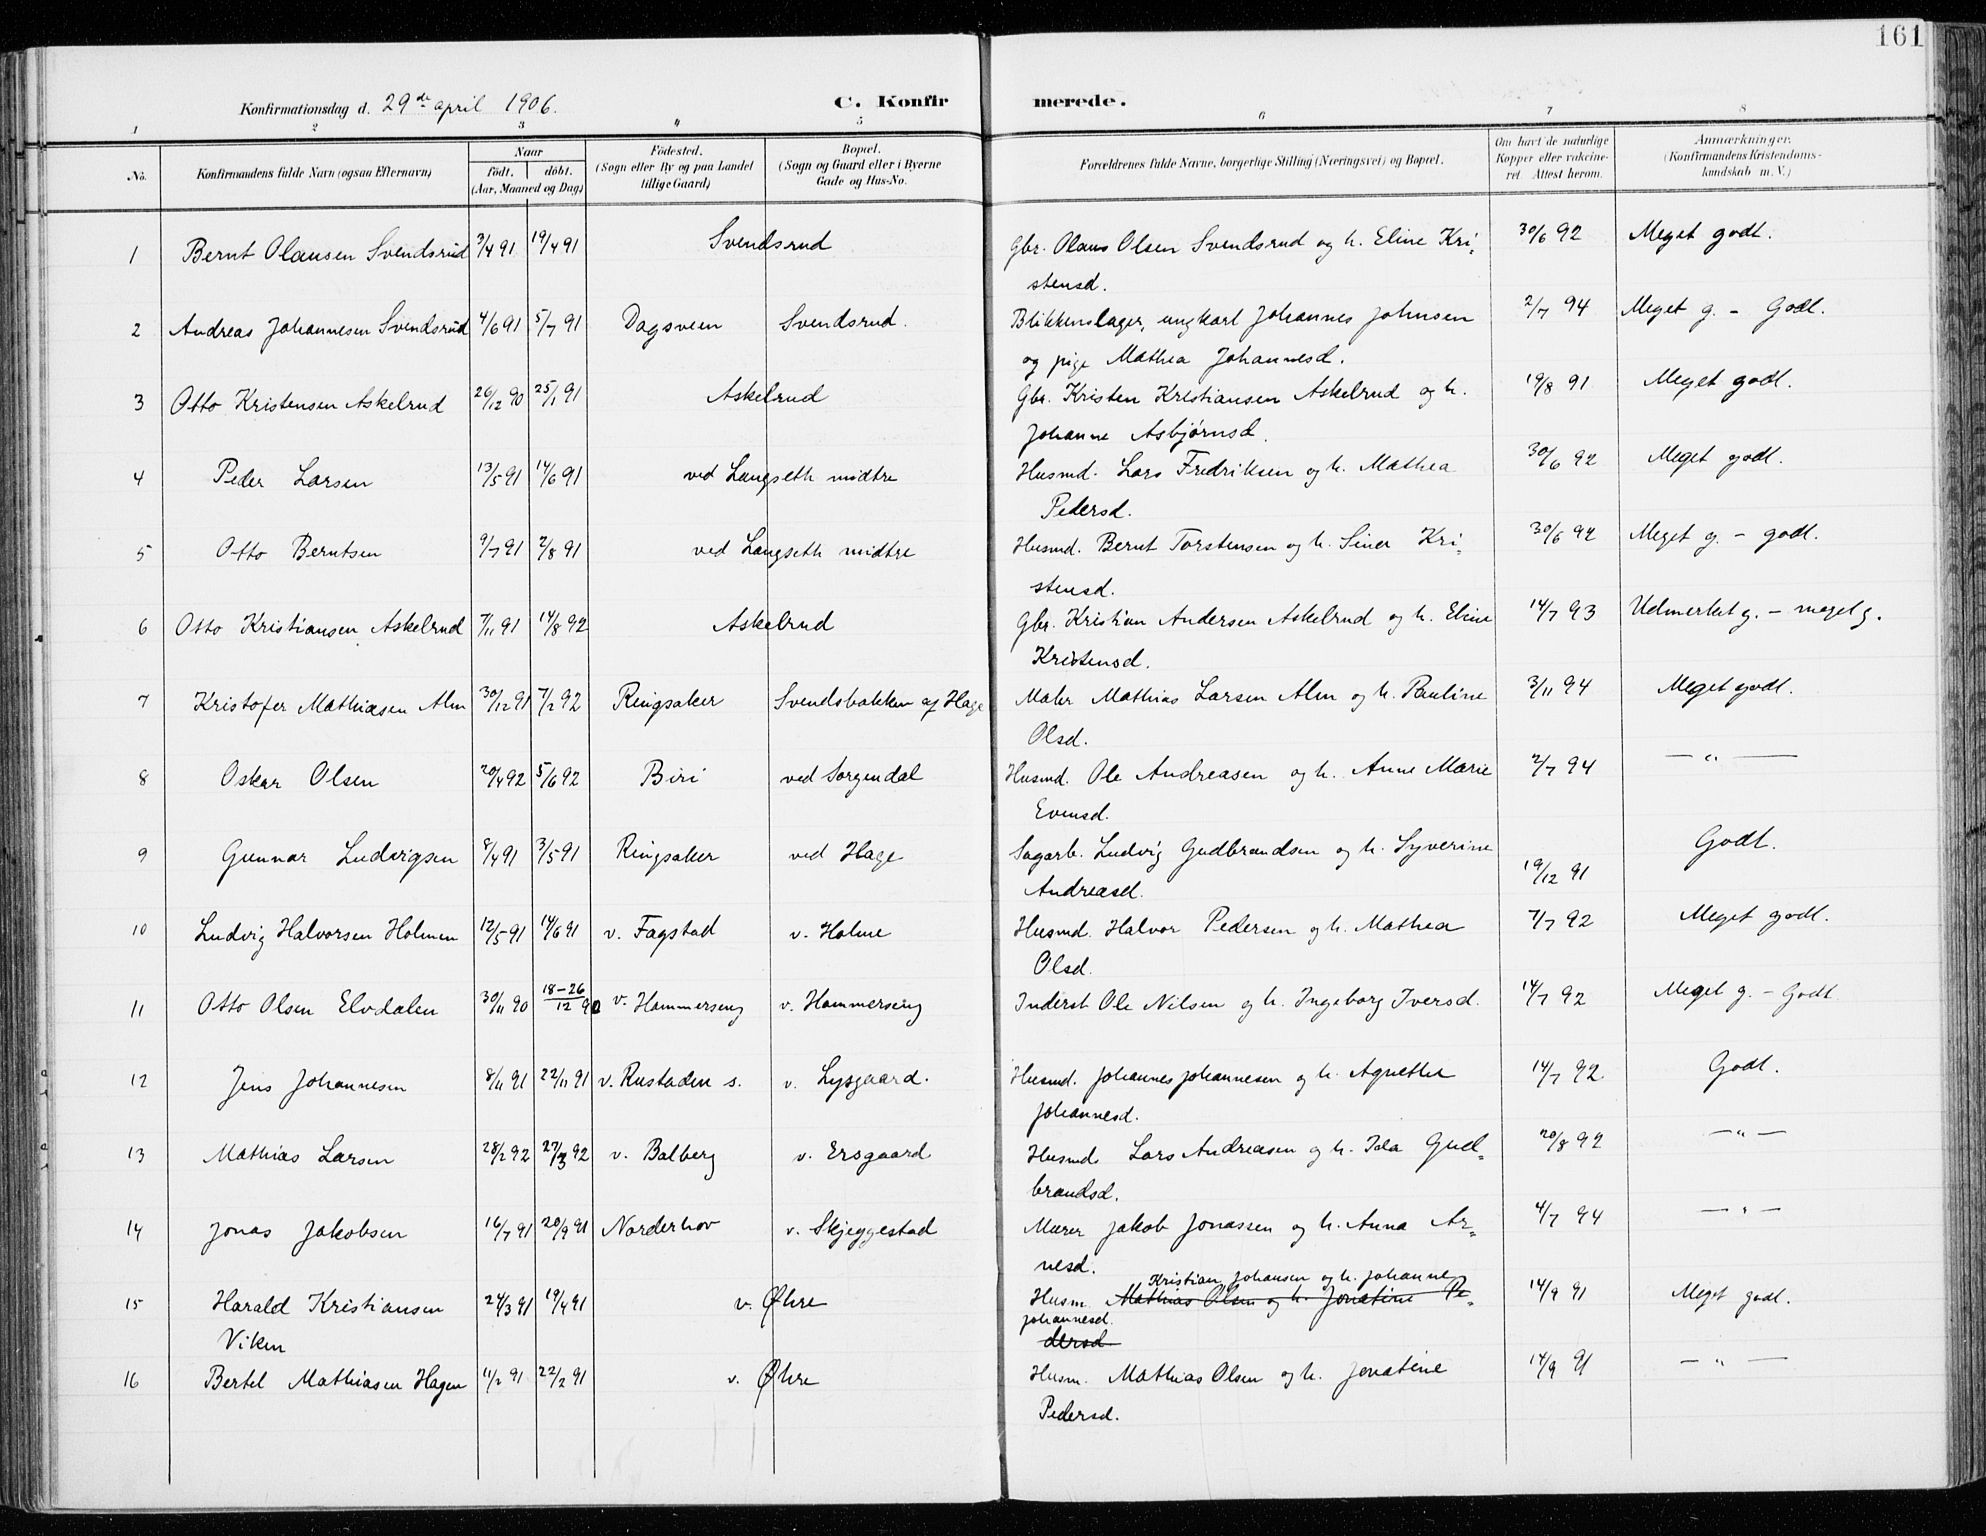 161
Konfirmationsdag d. 29de april 1906. C. Konfirmerede.
1 2 3 4 5 6 7 8
No. Konfirmandens fulde Navn (ogsaa Efternavn) Naar födt. döbt. (Aar, Maaned og Dag) Födested. (Sogn eller By og paa Landet tillige Gaard) Bopæl. (Sogn og Gaard eller i Byerne Gade og Hus-No. Forældrenes fulde Navne, borgerlige Stilling (Næringsvei) og Bopæl. Om havt de naturlige Kopper eller vakcineret. Attest herom. Anmærkninger. (Konfirmandens Kristendomskundskab m. V.)
1 Bernt Olausen Svendsrud 3/4 91 19/4 91 Svendsrud Gbr. Olaus Olsen Svendsrud og h. Eline Kri- 30/6 92 Meget godt.
stensd.
2 Andreas Johannesen Svendsrud 4/6 91 5/7 91 Dagsveen Svendsrud. Blikkenslager, ungkarl Johannes Johnsen 2/7 94 Meget g. - Godt.
og pige Mathea Johannesd.
3 Otto Kristensen Askelrud 26/12 90 25/1 91 Askelrud Gbr. Kristen Kristiansen Askelrud og h. 19/8 91 Meget godt.
Johanne Asbjørnsd.
4 Peder Larsen 13/5 91 14/6 91 ved Langseth midtre Husmd. Lars Fredriksen og h. Mathea 30/6 92 Meget godt.
Pedersd.
5 Otto Berntsen 9/7 91 2/8 91 ved Langseth midtre Husmd. Bernt Torstensen og h. Sine Kri- 30/6 92 Meget g. - godt.
stensd.
6 Otto Kristiansen Askelrud 7/11 91 14/8 92 Askelrud Gbr. Kristian Andersen Askelrud og h. Eline 14/7 93 Udmerket g. - meget g.
Kristensd.
7 Kristofer Mathiasen Alm 30/12 91 7/2 92 Ringsaker Svendsbakken af Hage Maler Mathias Larsen Alm og h. Pauline 3/11 94 Meget godt.
Olsd.
8 Oskar Olsen 20/4 92 5/6 92 Biri ved Sorgendal Husmd. Ole Andreasen og h. Anne Marie 2/7 94 — " —
Evensd.
9 Gunnar Ludvigsen 8/4 91 3/5 91 Ringsaker ved Hage Sagarb. Ludvig Gudbrandsen og h. Syverine 19/12 91 Godt.
Andreasd.
10 Ludvig Halvorsen Holmen 12/5 91 14/6 91 v. Fagstad v. Holme Husmd. Halvor Pedersen og h. Mathea 7/7 92 Meget godt.
Olsd.
11 Otto Olsen Elvdalen 30/11 90 18-26/12 90 v. Hammerseng v. Hammerseng Inderst Ole Nilsen og h. Ingeborg Iversd. 14/7 92 Meget g. - Godt.
12 Jens Johannesen 8/11 91 22/11 91 v. Rustaden s. v. Lysgaard. Husmd. Johannes Johannesen og h. Agnethe 14/7 92. Godt.
Johannesd.
13 Mathias Larsen 28/2 92 27/3 92 v. Balberg v. Ersgaard Husmd Lars Andreasen og h. Ida Gud- 20/8 92 — " —
brandsd.
14 Jonas Jakobsen 16/7 91 20/9 91 Norderhov v. Skjeggestad Murer Jakob Jonassen og h. Anna Ar- 4/7 94 — " —
nesd.
Kristian Johansen og h. Johanne
15 Harald Kristiansen 24/3 91 19/4 91 v. Øhre Husm. Mathias Olsen og h. Jonatine Pe- 14/9 91 Meget godt.
Johannesd.
Viken dersd.
16 Bertel Mathiasen Hagen 11/2 91 22/2 91 v. Øhre Husm. Mathias Olsen og h. Jonatine 14/9 91 — " —
Pedersd.